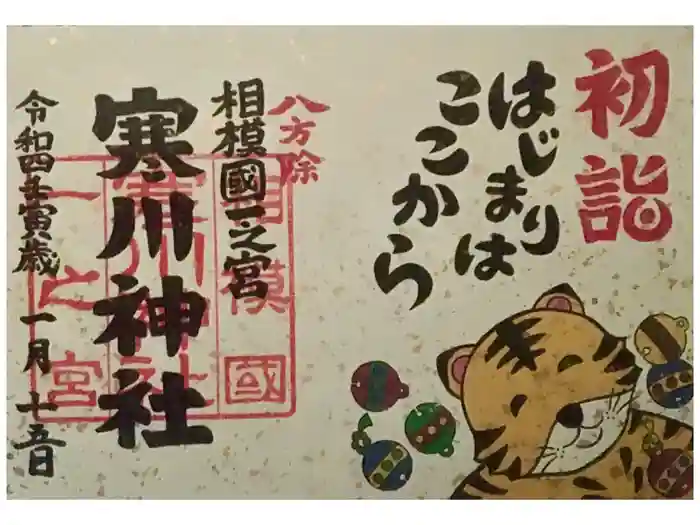 初詣
はじまりは
ここから
八方除
相模國一之宮
寒川神社
令和四壬寅歳 一月十五日
相模國
寒川神社
一之宮